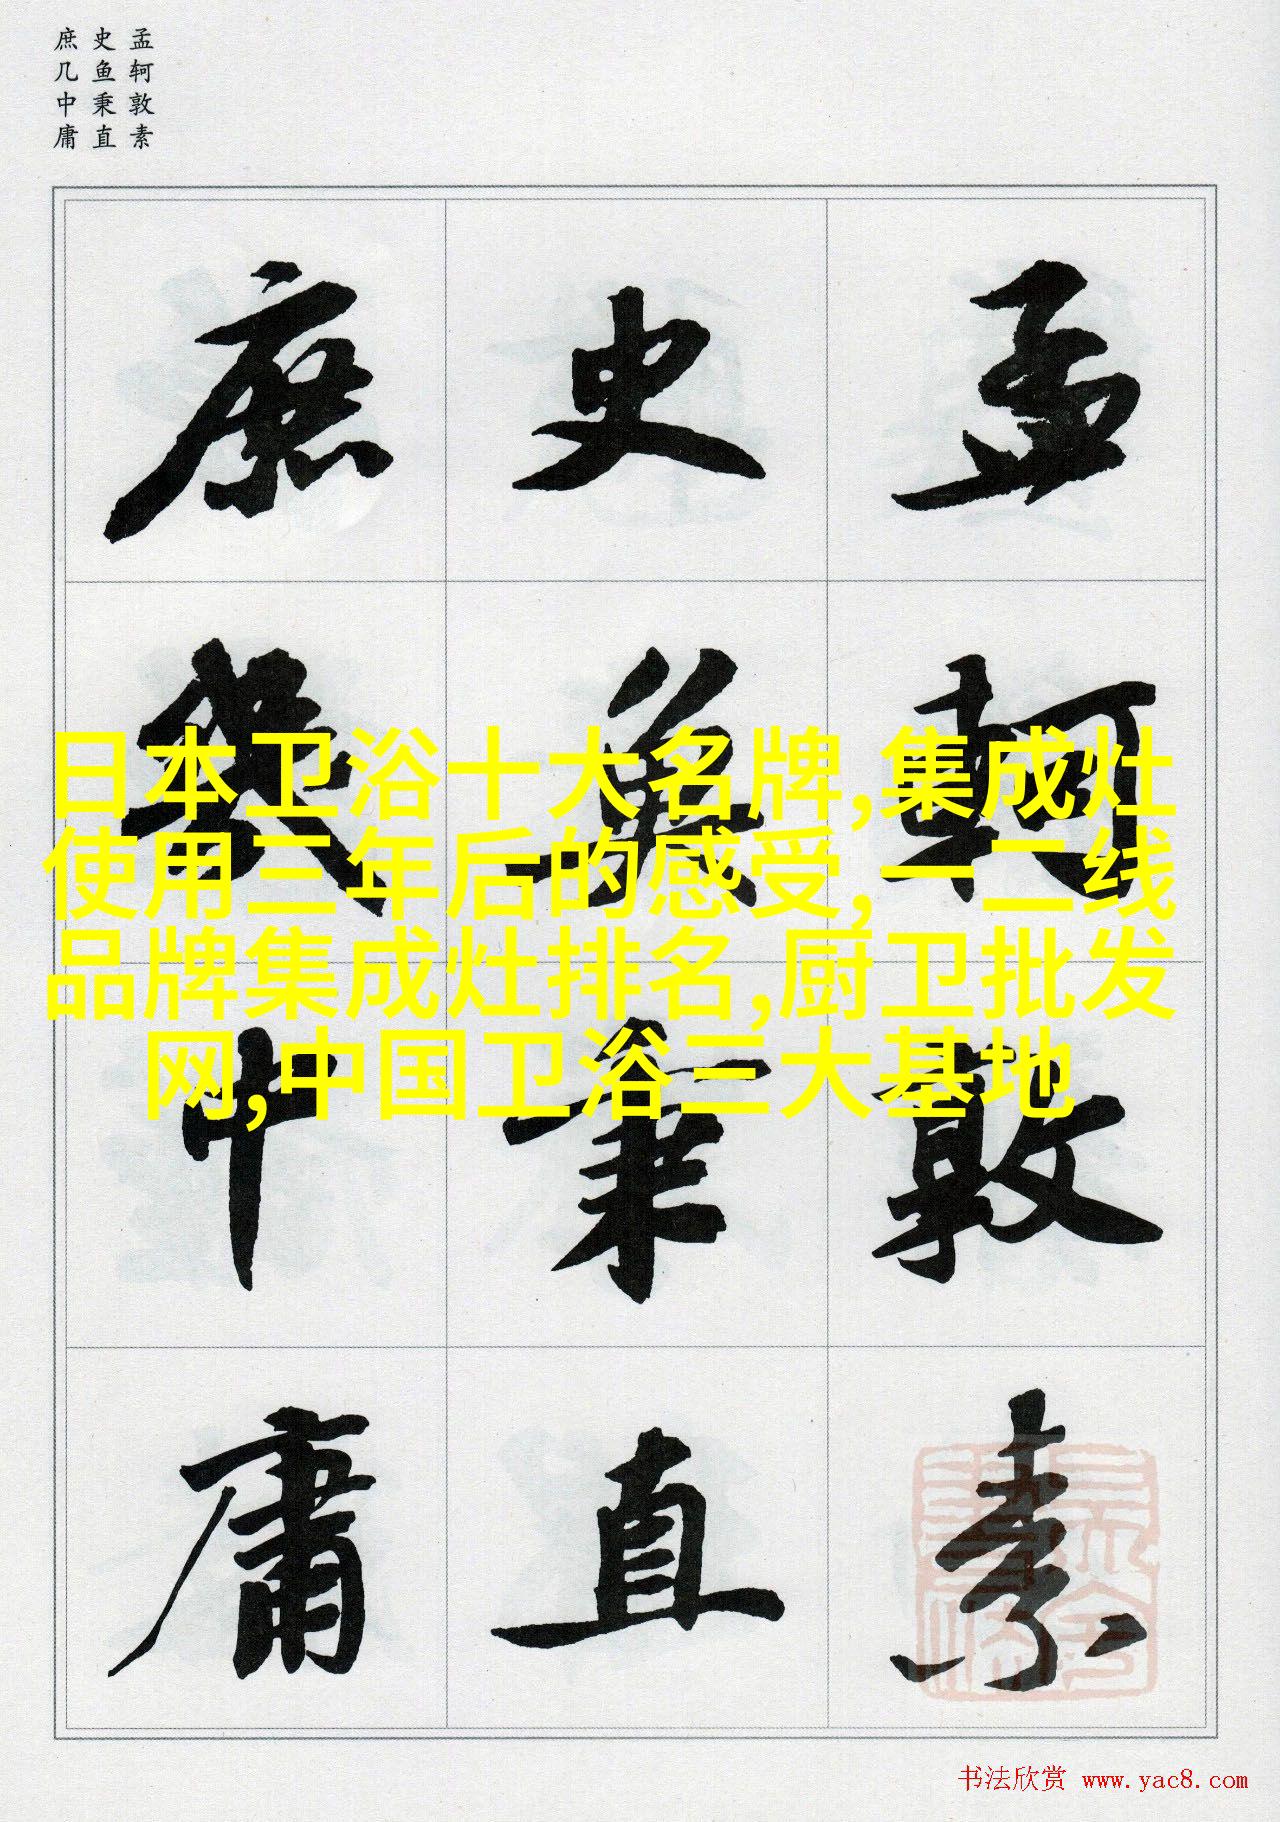 孟轲敦素
史鱼秉直
庶几中庸
孟軻敦素
史魚秉直
庶幾中庸
日本卫浴十大名牌,集成灶
使用三年后的感受,一二线
品牌集成灶排名,厨卫批发
网,中国卫浴三大基地
书法欣赏 www.yac8.com